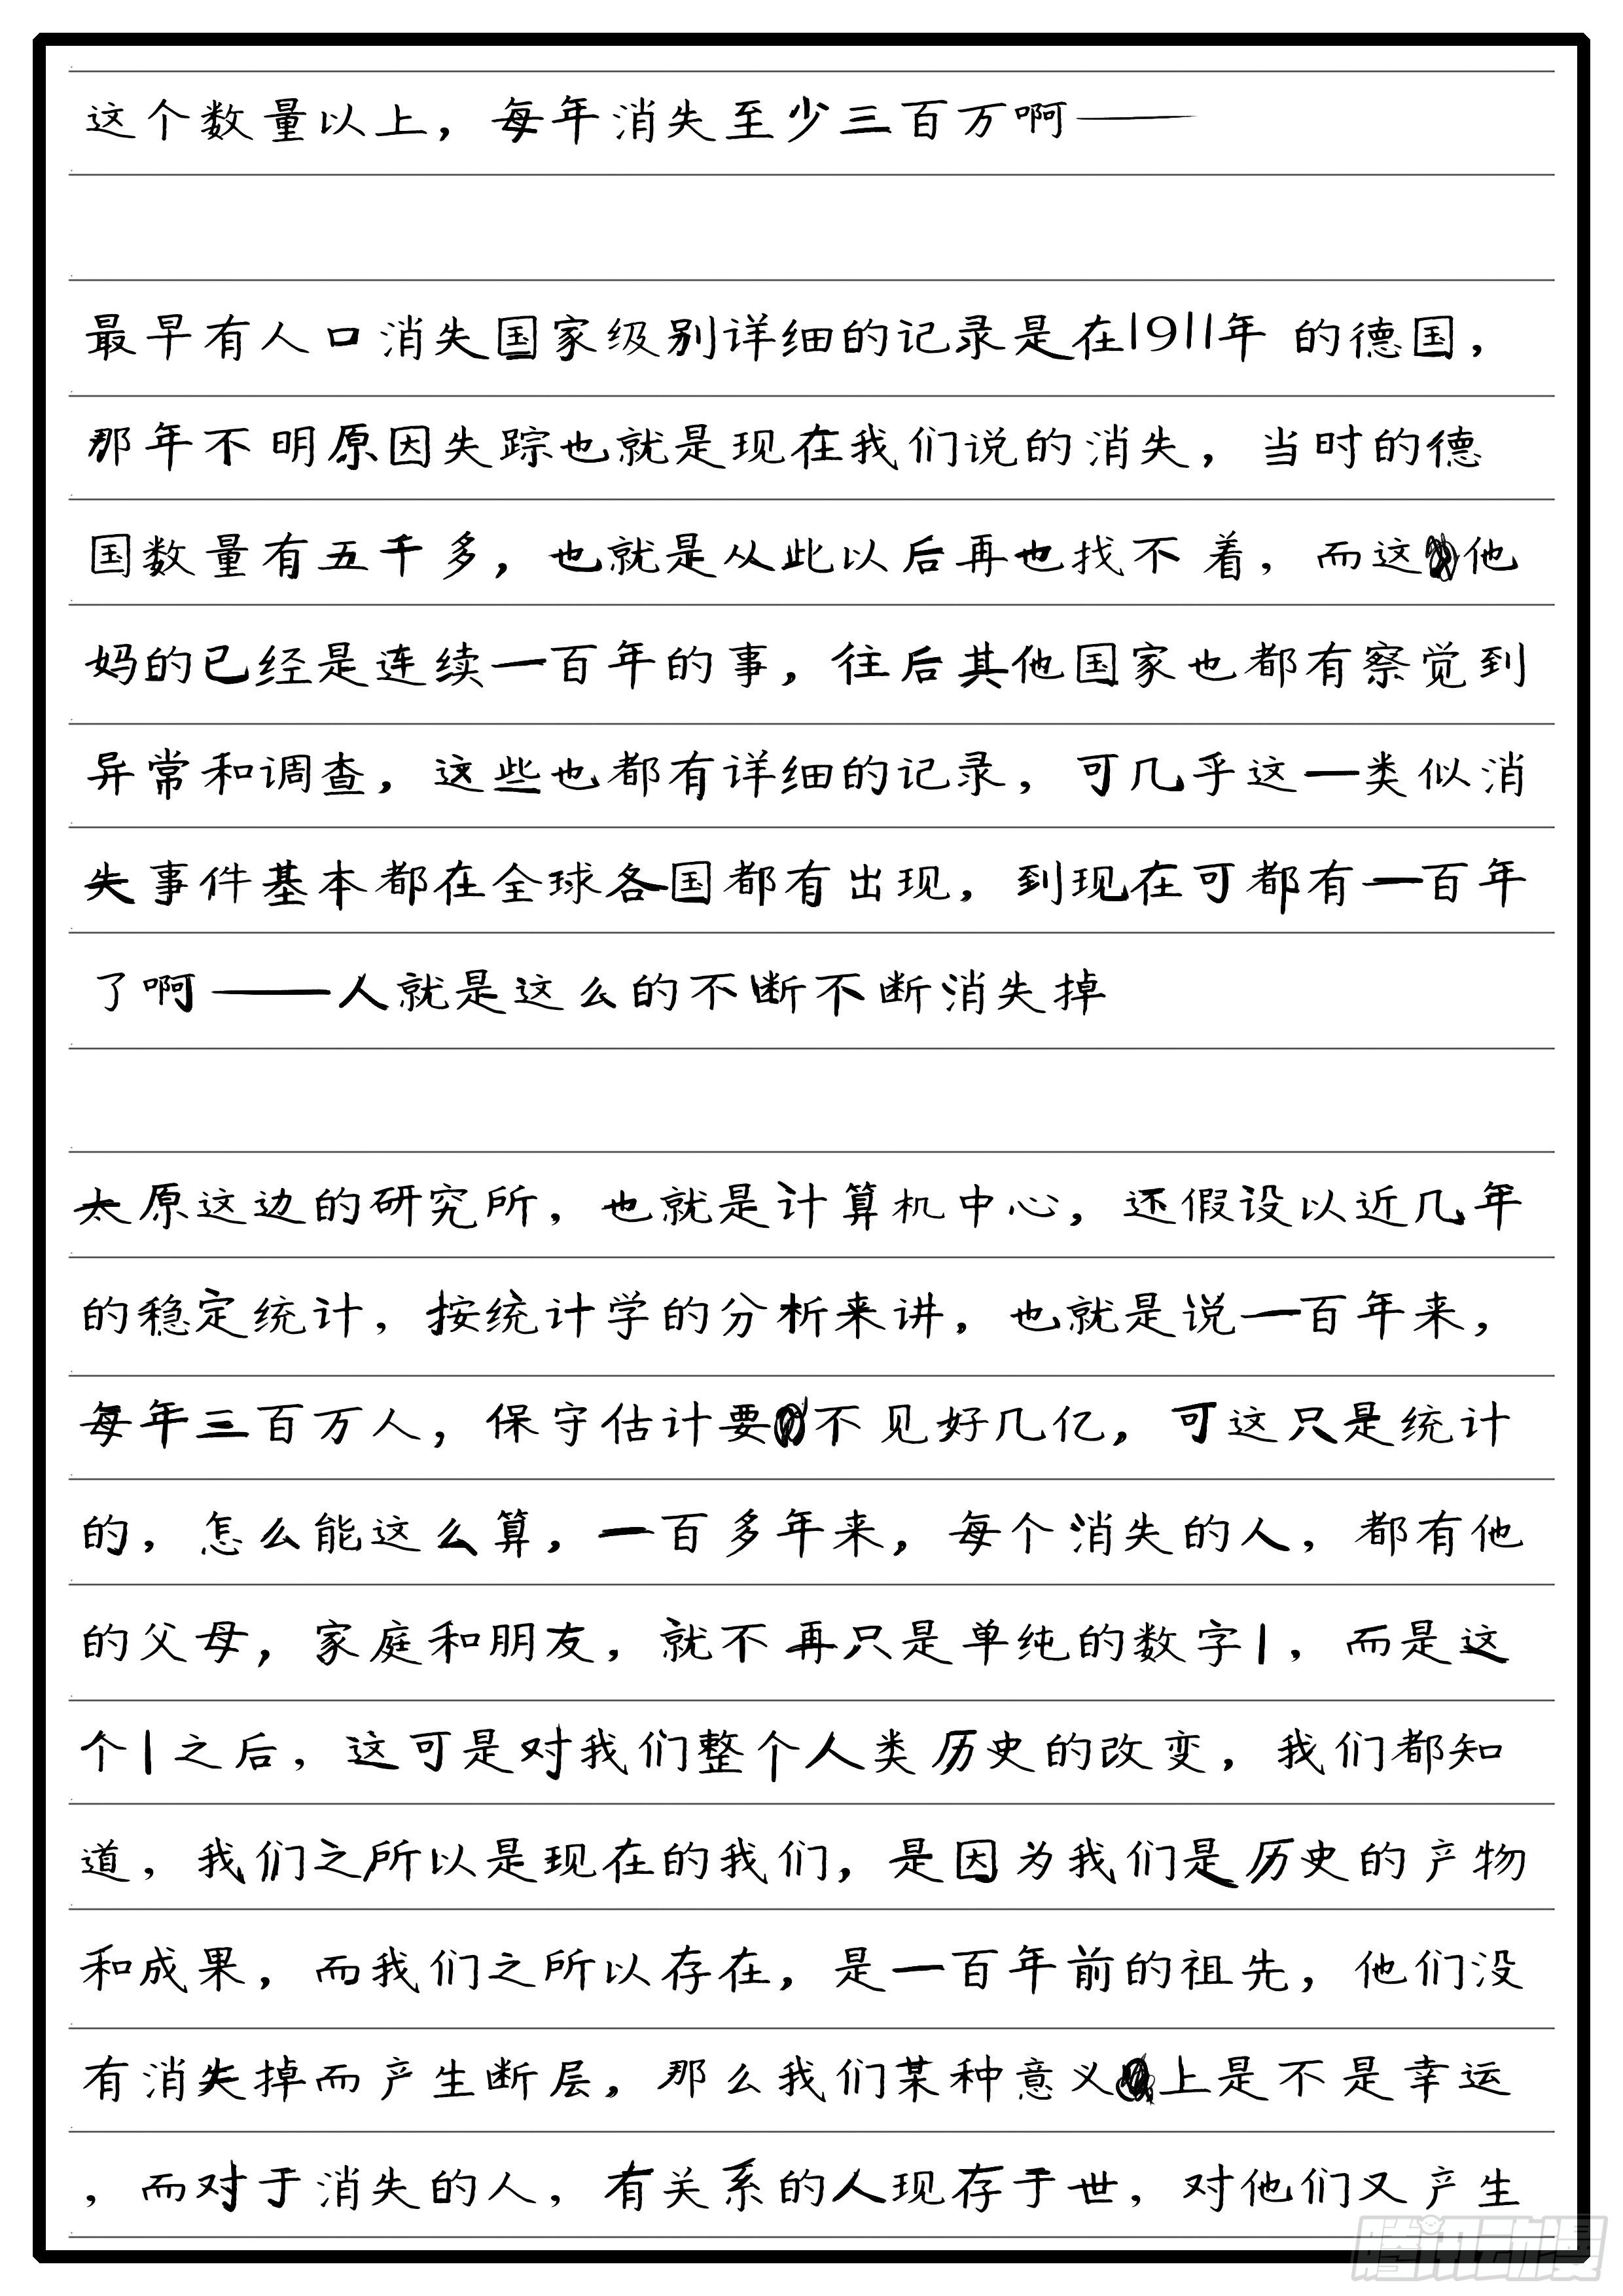 这个数量以上，每年消失至少三百万啊——
最早有人口消失国家级别详细的记录是在1911年的德国，
那年不明原因失踪也就是现在我们说的消失，当时的德
国数量有五千多，也就是从此以后再也找不着，而这他
妈的已经是连续一百年的事，往后其他国家也都有察觉到
异常和调查，这些也都有详细的记录，可几乎这一类似消
失事件基本都在全球各国都有出现，到现在可都有一百年
了啊——人就是这么的不断不断消失掉
太原这边的研究所，也就是计算机中心，还假设以近几年
的稳定统计，按统计学的分析来讲，也就是说一百年来，
每年三百万人，保守估计要不见好几亿，可这只是统计
的，怎么能这么算，一百多年来，每个消失的人，都有他
的父母，家庭和朋友，就不再只是单纯的数字1，而是这
个1之后，这可是对我们整个人类历史的改变，我们都知
道，我们之所以是现在的我们，是因为我们是历史的产物
和成果，而我们之所以存在，是一百年前的祖先，他们没
有消失掉而产生断层，那么我们某种意义上是不是幸运
，而对于消失的人，有关系的人现存于世，对他们又产生
腾讯动漫